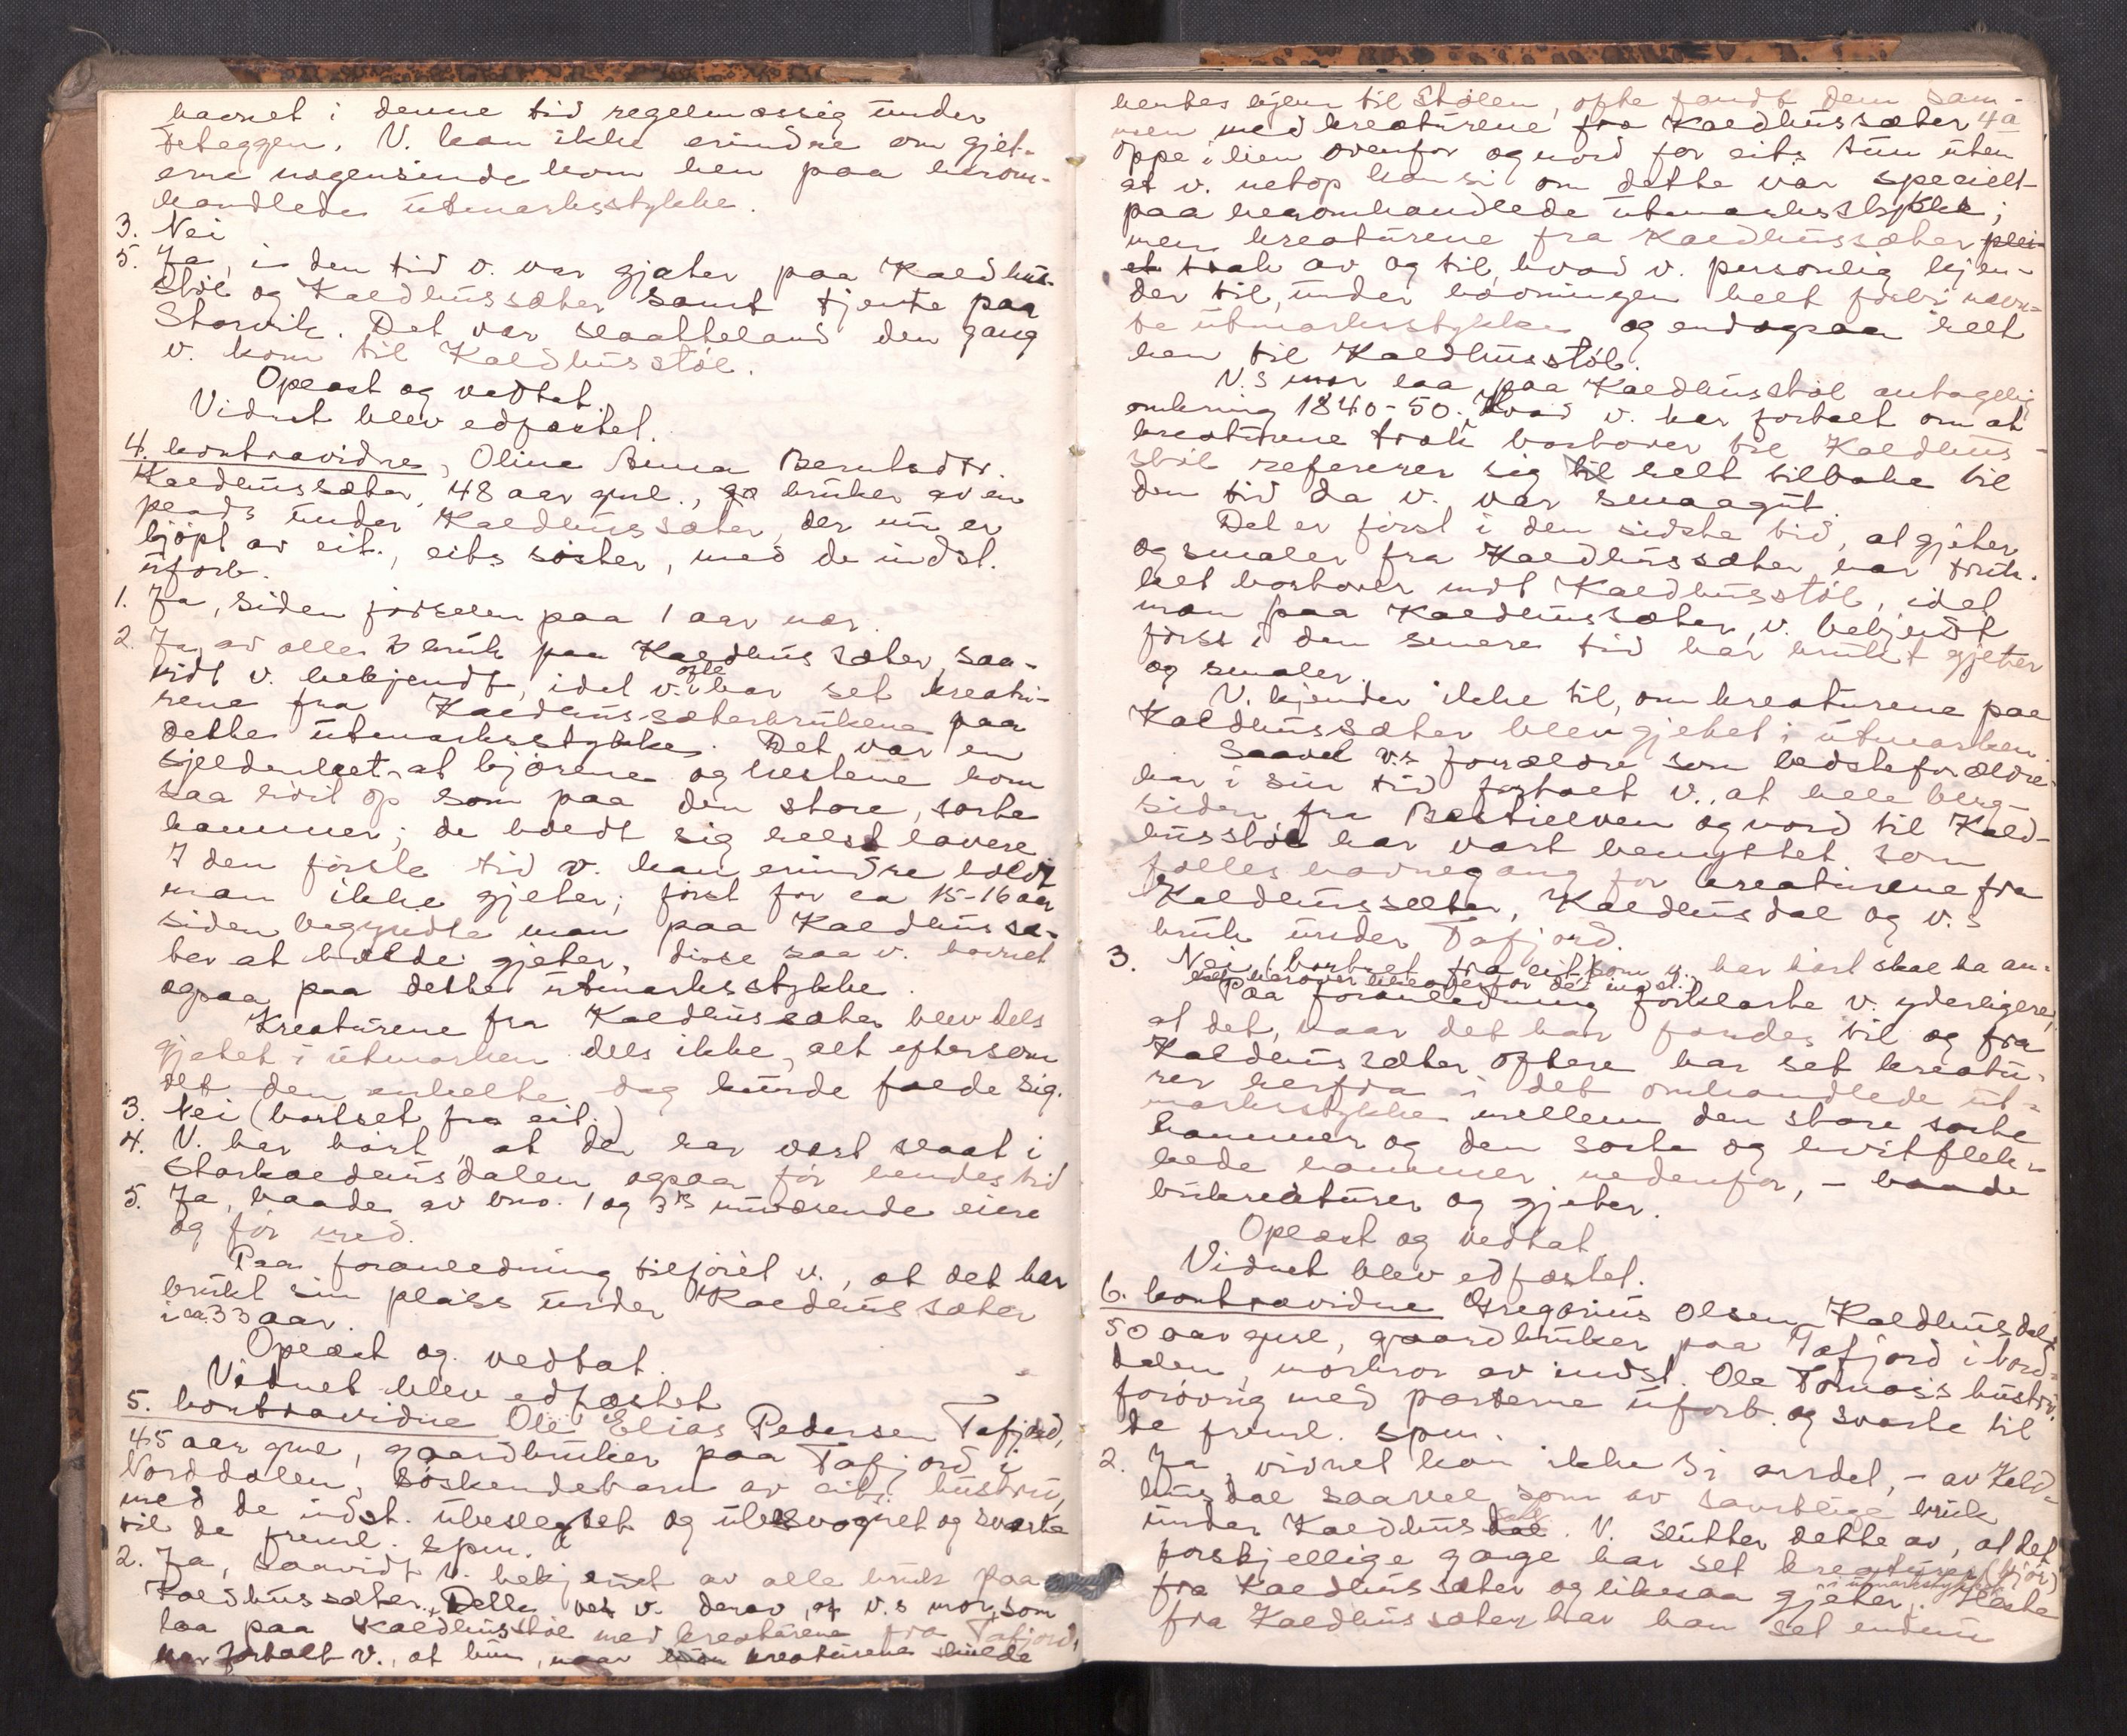 havnet i denne tid regelmæssig under
heggen. V. kan ikke erindre om gjet-
erne nogensinde kom hen paa herom-
handlede utmarksstykke.
3. Nei
5. Ja, i den tid v. var gjæter paa Kaldhus-
støl og Kaldhussæter samt tjente paa
Storvik. Det var slaatteland den gang
v. kom til Kaldhusstøl.
Oplæst og vedtat.
Vidnet blev edfæstet.
4. kontravidne, Oline Anna Berntsdtr.
Kaldhussæter, 48 aar gml., bruker av en
plads under Kaldhussæter, der nu er
kjøpt av cit., cits søster, med de indst.
uforb.
1. Ja, siden førselen paa 1 aar nær.
2. Ja, av alle 3 bruk paa Kaldhussæter, saa-
vidt v. bekjendt, idet v. ofte har set kreatu-
rene fra Kaldhus-sæterbrukene paa
dette utmarksstykke. Det var en
sjeldenhet at kjørene og hestene kom
saa vidt op som paa den store, sorte
hammer; de holdt sig helst lavere.
I den første tid v. kan erindre holdt
man ikke gjeter; først for ca 15-16 aar
siden begyndte man paa Kaldhussæ-
ter at holde gjeter, disse saa v. havnet
ogsaa paa dette utmarksstykke.
Kreaturene fra Kaldhussæter blev dels
gjetet i utmarken dels ikke, alt eftersom
det den enkelte dag kunde falde sig.
3. Nei (bortset fra cit.)
4. V. har hørt, at der har vært slaat i
Storkaldhusdalen ogsaa før hendes tid
5. Ja, baade av bno. 1 og 3's nuværende eiere
og før med.
Paa foranledning tilføiet v., at det har
brukt sin plass under Kaldhussæter
i ca. 33 aar.
Oplæst og vedtat.
Vidnet blev edfæstet
5. kontravidne Ole Elias Pedersen Tafjord,
45 aar gml, gaardbruker paa Tafjord i
Norddalen, søskendebarn av cits hustru,
med de indst. ubeslegtet og ubesvogret og svarte
til de freml. spm.
2. Ja, saavidt v. bekjendt av alle bruk paa
Kaldhussæter. Dette vet v. derav, at v.s mor, som
laa paa Kaldhusstøl med kreaturene fra Tafjord,
har fortalt v., at hun, naar kreaturene skulde
hentes hjem til stølen, ofte fandt dem sam-
4a
men med kreaturene fra Kaldhussæter
oppe i lien ovenfor og nord for cits tun uten
at v. netop kan si om dette var specielt
paa heromhandlede utmarksstykke;
men kreaturene fra Kaldhussæter plei-
et trak av og til, hvad v. personlig kjen-
der til, under havningen helt forbi nævn-
te utmarksstykke og endogsaa helt
hen til Kaldhusstøl.
V.s mor laa paa Kaldhusstøl antagelig
omkring 1840-50. Hvad v. har fortalt om at
kreaturene trak bortover til Kaldhus-
støl refererer sig til helt tilbake til
den tid da v. var smaagut.
Det er først i den sidste tid, at gjeter
og smaler fra Kaldhussæter har truk-
ket bortover mot Kaldhusstøl, idet
man paa Kaldhussæter, v. bekjendt
først i den senere tid har brukt gjeter
og smaler.
V. kjender ikke til, om kreaturene paa
Kaldhussæter blev gjetet i utmarken.
Saavel v.s forældre som bedsteforældre
har i sin tid fortalt v., at hele berg-
siden fra Beltielven og nord til Kald-
husstøl har vært benyttet som
fælles havnegang for kreaturene fra
Kaldhussæter, Kaldhusdal og v.s
bruk under Tafjord.
3. Nei, (bortset fra cit. som v. har hørt skal ha an-
Paa foranledning forklarte v. yderligere,
at det, naar det har færdes til og fra
Kaldhussæter, oftere har set kreatu-
rer herfra i det omhandlede ut-
marksstykke mellem den store sorte
hammer og den sorte og hvitflek-
kede hammer nedenfor, - baade
bukreaturer og gjeter.
Oplæst og vedtat
Vidnet blev edfæstet.
6. kontravidne Gregorius Olsen Kaldhusdal
50 aar gml, gaardbruker paa Tafjord i Nord-
dalen, morbror av indst. Ole Tomas's hustru,
forøvrig med parterne uforb. og svarte til
de freml. spm.
2. Ja, vidnet kan ikke si andet, - av Kald-
husdal saavel som av samtlige bruk
under Kaldhussæt. V. slutter dette av, at det
forskjellige gange har set kreaturer (kjør)
fra Kaldhussæter og likesaa gjeter i utmarksstykket. Hæste
fra Kaldhussæter har han set endnu